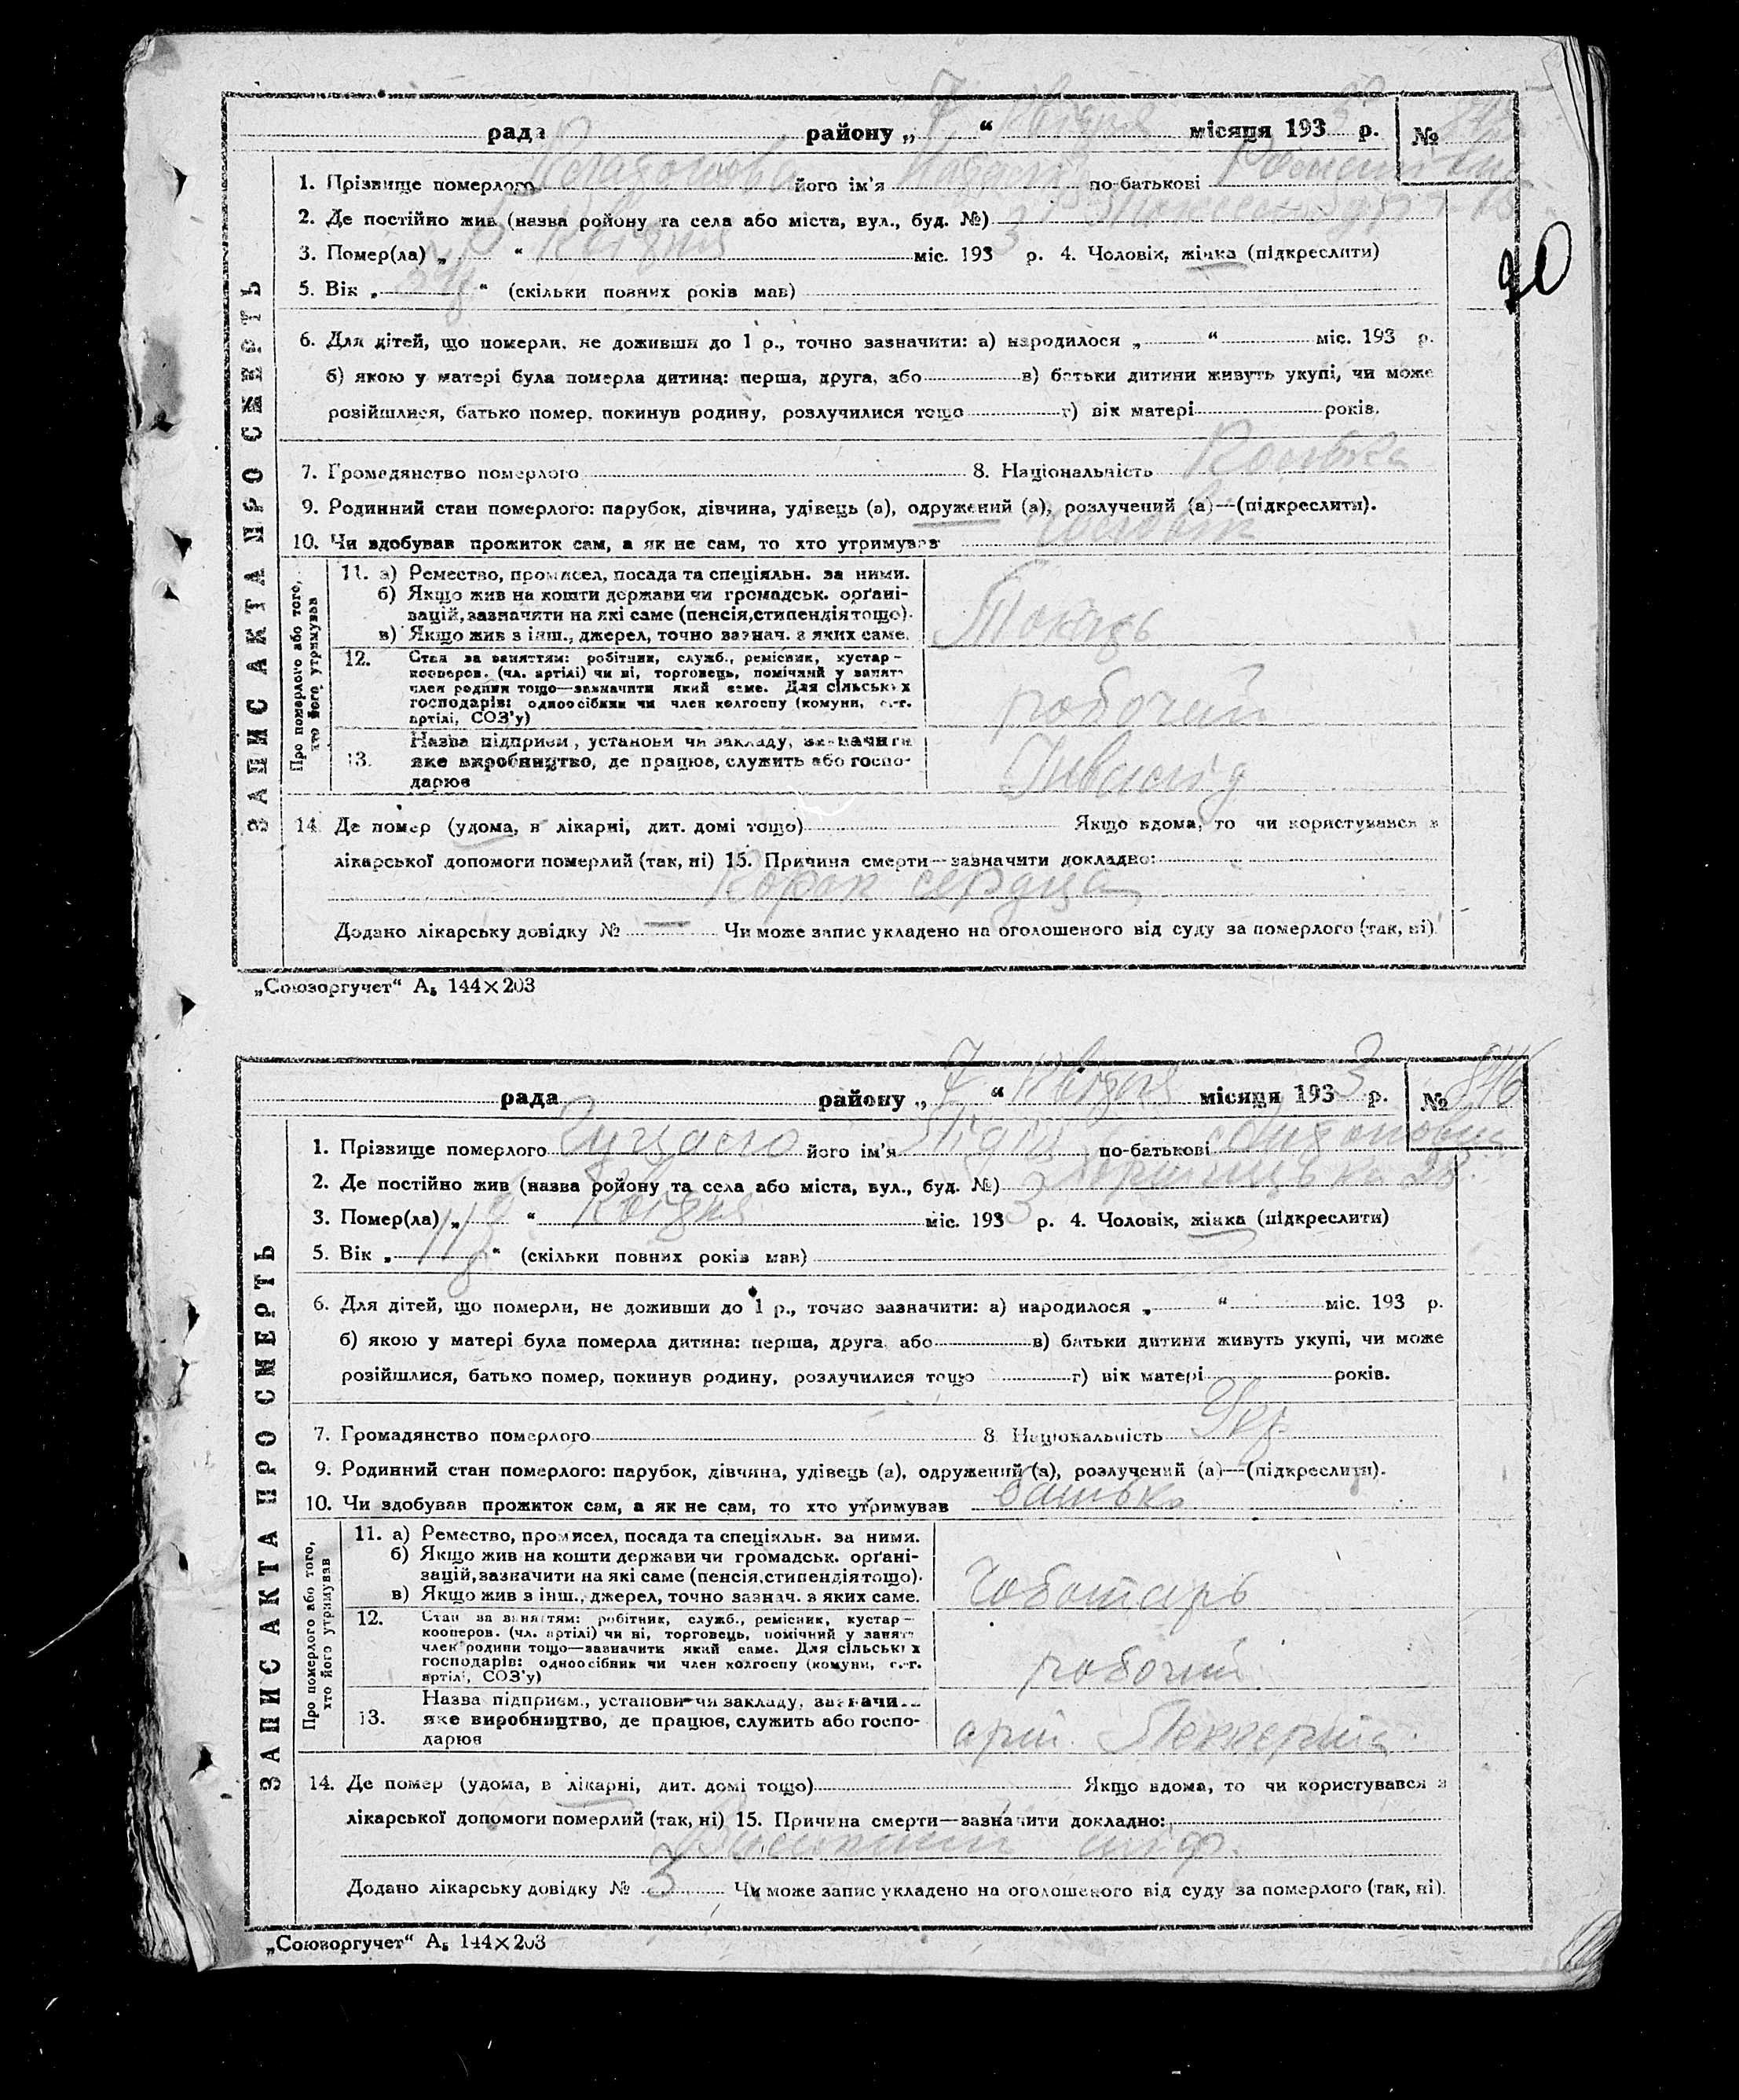 рада району „ 7 “ Квітня місяця 193 3 р. №
1. Прізвище померлого його ім'я по-батькові
2. Де постійно жив (назва ройону та села або міста, вул., буд. №)
3. Помер(ла) „ “ Квітня міс. 193 3 р. 4. Чоловік, жінка (підкреслити)
5. Вік „ “ (скільки повних років мав)
6. Для дітей, що померли, не доживши до 1 р., точно зазначити: а) народилося „ “ міс. 193 р.
б) якою у матері була померла дитина: перша, друга, або в) батьки дитини живуть укупі, чи може
розійшлися, батько помер, покинув родину, розлучилися тощо г) вік матері років.
7. Громадянство померлого 8. Національність
9. Родинний стан померлого: парубок, дівчина, удівець (а), одружений (а), розлучений (а)—(підкреслити).
10. Чи здобував прожиток сам, а як не сам, то хто утримував чоловік
ЗАПИС АКТА ПРО СМЕРТЬ
Про померлого або того, хто його утримував
11. а) Ремество, промисел, посада та спеціяльн. за ними.
б) Якщо жив на кошти держави чи громадськ. орґані-
зацій, зазначити на які саме (пенсія, стипендія тощо).
в) Якщо жив з інш., джерел, точно зазнач. з яких саме.
Токарь
12. Стан за заняттям: робітник, служб., ремісник, кустар—
кооперов. (чл. артілі) чи ні, торговець, помічний у занятт
член родини тощо—зазначити який саме. Для сільських
господарів: одноосібник чи член колгоспу (комуни, с.-г.
артілі, СОЗ'у)
робочий
13. Назва підприєм., установи чи закладу, зазначити
яке виробництво, де працює, служить або госпо-
дарює
Інвалід
14. Де помер (удома, в лікарні, дит. домі тощо) Якщо вдома, то чи користувався з
лікарської допомоги померлий (так, ні) 15. Причина смерти—зазначити докладно:
сердца
Додано лікарську довідку № — Чи може запис укладено на оголошеного від суду за померлого (так, ні)
„Союзоргучет“ А₅ 144×203
рада району „ 7 “ Квітня місяця 193 3 р. № 846
1. Прізвище померлого його ім'я Лідія по-батькові
2. Де постійно жив (назва ройону та села або міста, вул., буд. №)
3. Помер(ла) „ “ Квітня міс. 193 3 р. 4. Чоловік, жінка (підкреслити)
5. Вік „ 11 “ (скільки повних років мав)
6. Для дітей, що померли, не доживши до 1 р., точно зазначити: а) народилося „ “ міс. 193 р.
б) якою у матері була померла дитина: перша, друга, або в) батьки дитини живуть укупі, чи може
розійшлися, батько помер, покинув родину, розлучилися тощо г) вік матері років.
7. Громадянство померлого 8. Національність Укр.
9. Родинний стан померлого: парубок, дівчина, удівець (а), одружений (а), розлучений (а)—(підкреслити).
10. Чи здобував прожиток сам, а як не сам, то хто утримував батько
ЗАПИС АКТА ПРО СМЕРТЬ
Про померлого або того, хто його утримував
11. а) Ремество, промисел, посада та спеціяльн. за ними.
б) Якщо жив на кошти держави чи громадськ. орґані-
зацій, зазначити на які саме (пенсія, стипендія тощо).
в) Якщо жив з інш., джерел, точно зазнач. з яких саме.
Чоботарь
12. Стан за заняттям: робітник, служб., ремісник, кустар—
кооперов. (чл. артілі) чи ні, торговець, помічний у занятт
член родини тощо—зазначити який саме. Для сільських
господарів: одноосібник чи член колгоспу (комуни, с.-г.
артілі, СОЗ'у)
робочий
13. Назва підприєм., установи чи закладу, зазначи
яке виробництво, де працює, служить або госпо-
дарює
арт.
14. Де помер (удома, в лікарні, дит. домі тощо) Якщо вдома, то чи користувався з
лікарської допомоги померлий (так, ні) 15. Причина смерти—зазначити докладно:
тиф.
Додано лікарську довідку № 3 Чи може запис укладено на оголошеного від суду за померлого (так, ні).
„Союзоргучет“ А₅ 144×203